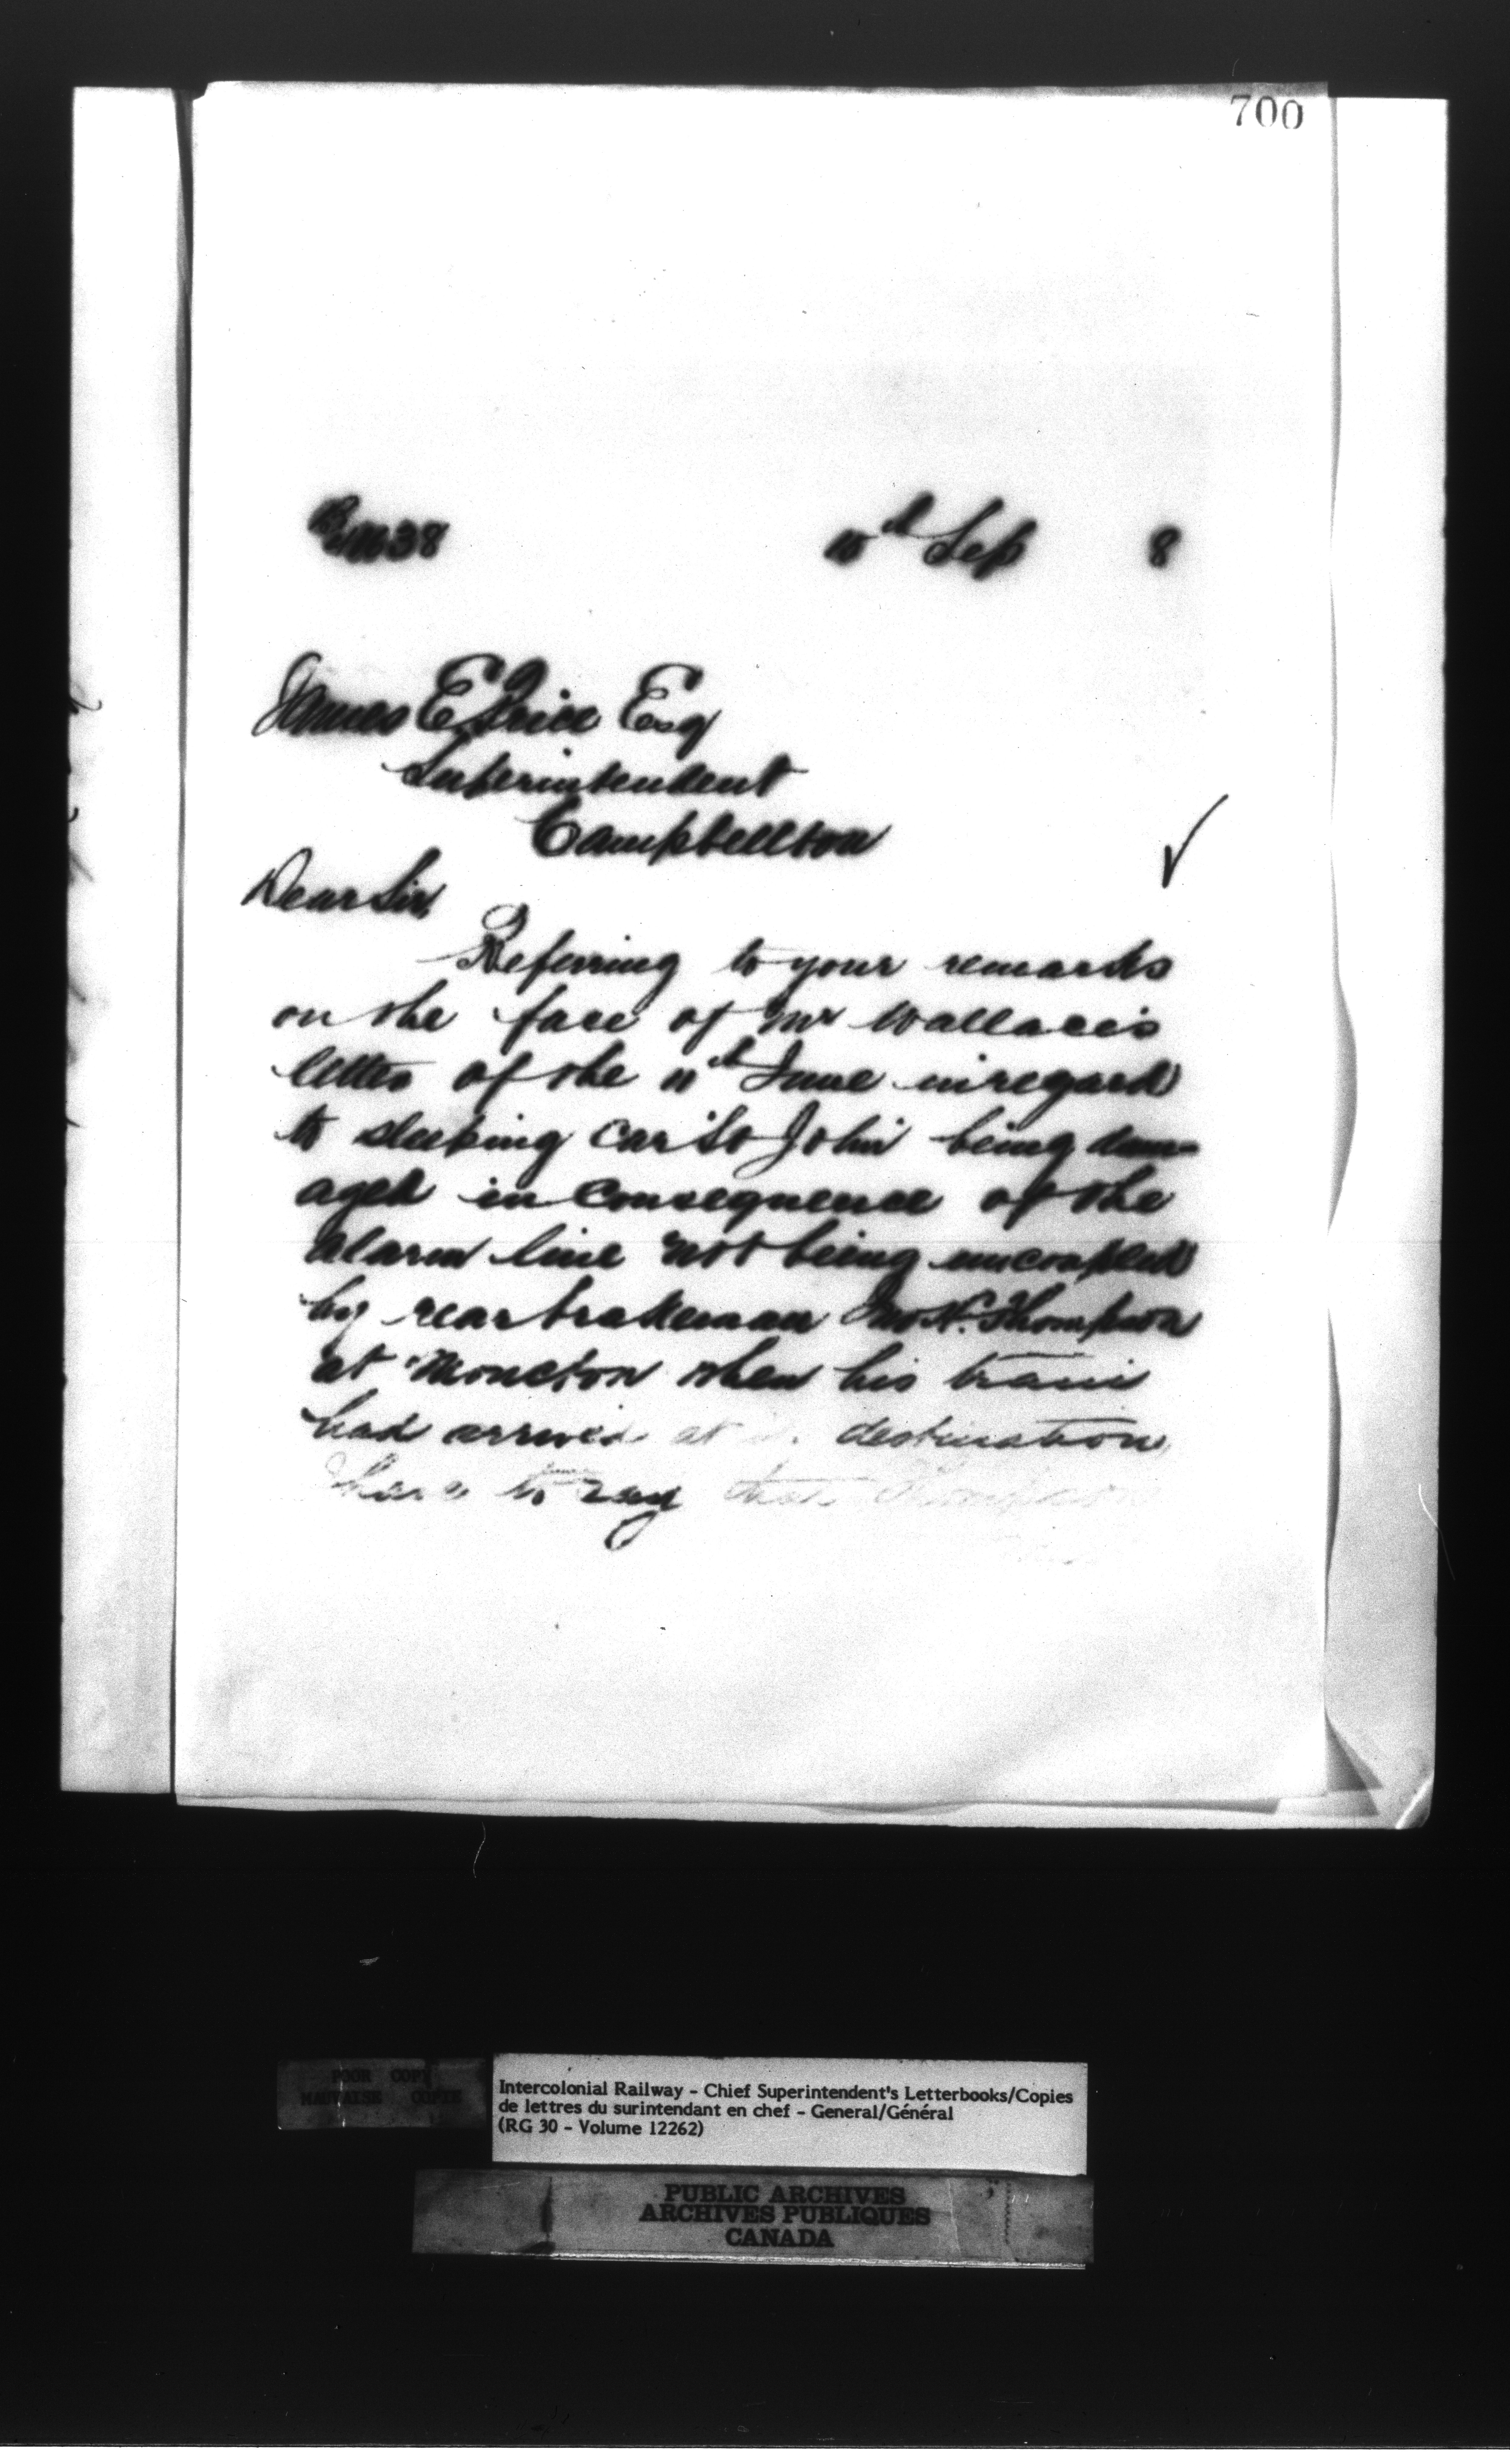 700
10th Sep 8
James E Price Esq
Superintendent
Campbellton
Dear Sir,
Referring to your remarks
on the face of Mr Wallace's
letter of the 11th June in regard
to sleeping car "St John" being dam-
aged in consequence of the
alarm line not being uncoupled
by rear brakeman Thompson
at Moncton when his train
had arrived at destination,
have to say that Thompson
POOR COPY
MAUVAISE COPIE
Intercolonial Railway - Chief Superintendent's Letterbooks/Copies
de lettres du surintendant en chef - General/Général
(RG 30 - Volume 12262)
PUBLIC ARCHIVES
ARCHIVES PUBLIQUES
CANADA